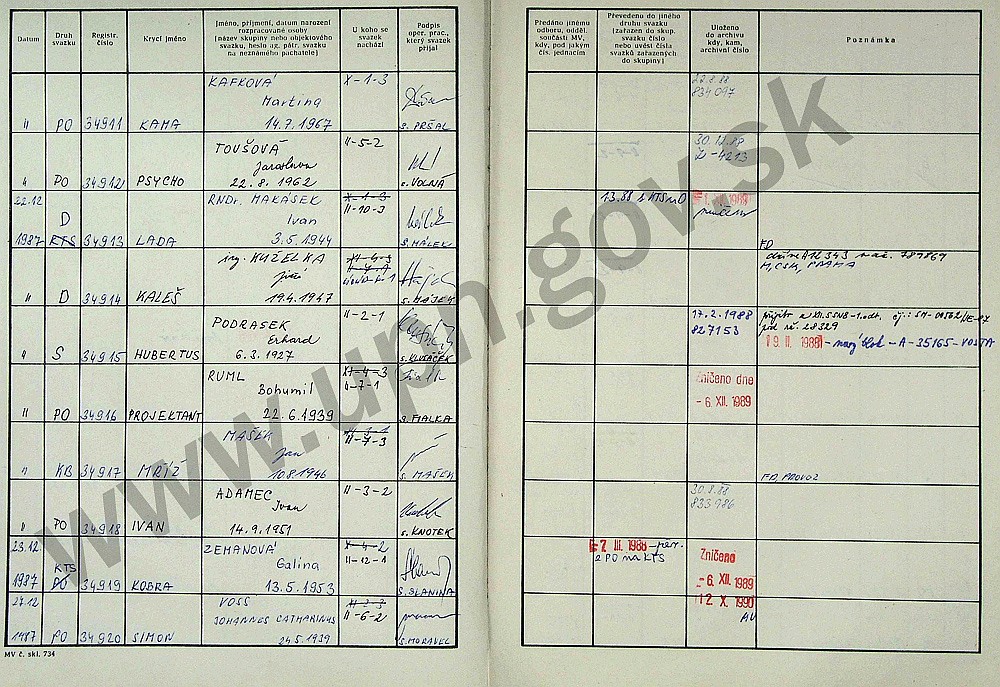 Datum
Druh
svazku
Registr.
číslo
Krycí jméno
Jméno, příjmení, datum narození
rozpracované osoby
(název skupiny nebo objektového
svazku, heslo ag. pátr. svazku
na neznámého pachatele)
U koho se
svazek
nachází
Podpis
oper. prac.,
který svazek
přijal
Předáno jinému
odboru, odděl.
součásti MV,
kdy, pod jakým
čís. jednacím
Převedeno do jiného
druhu svazku
(zařazen do skup.
svazku číslo
nebo uvést čísla
svazků zařazených
do skupiny)
Uloženo
do archivu
kdy, kam,
archivní číslo
Poznámka
KAFKOVÁ X-1-3 22.8.88
Martina 834097
" PO 34911 KAMA 14.7.1967 S. PRŠAL
TOUŠOVÁ II-5-2 30.12.88
Jaroslava Z-4213
" PO 34912 PSYCHO 22.8.1962 S. VOLNÁ
22.12 RNDr. MAKÁSEK X-1-3 13.88
D Ivan II-10-3
1987 KTS 34913 LADA 3.5.1944 S. MÁLEK FD
ing. KUŽELKA
Jiří M, CSK, PRAHA
" D 34914 KALEŠ 19.4.1947 S. HÁJEK
PODRASEK II-2-1 17.2.1988
Erhard 827153
" S 34915 HUBERTUS 6.3.1927 S. KLUSÁČEK 19. II. 1988 - nový blok - A-35165-VOSTA
RUML XI-4-3 Zničeno dne
Bohumil II-7-1 -6. XII. 1989
" PO 34916 PROJEKTANT 22.6.1939 S. FIALKA
MAŠEK
Jan II-7-3
" KB 34917 MŘÍŽ 10.8.1946 S. MAŠEK FD, PROVOZ
ADAMEC II-3-2 30.8.88
Ivan 833986
" PO 34918 IVAN 14.9.1951 S. KNOTEK
23.12. ZEMANOVÁ X-4-2 7. III. 1988 - per. Zničeno
KTS Galina II-12-1 z PO na KTS -6. XII. 1989
1987 PO 34919 KOBRA 13.5.1953 S. SLANINA
27.12 VOSS XI-2-3 12. X. 1990
JOHANNES CATHARINUS II-6-2 AV
1987 PO 34920 SIMON 24.5.1939 S. MORAVEC
MV č. skl. 734
www.upn.gov.sk